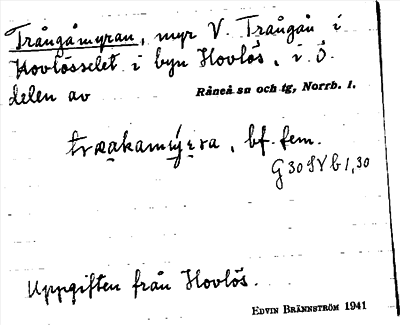 Trångåmyran, myr V. Trångån i
Hovlösselet i byn Hovlös, i ö.
delen av Råneå sn och tg, Norrb. l.
bf. fem.
G 30 SV b 1,30
Uppgiften från Hovlös.
EDVIN BRÄNNSTRÖM 1941